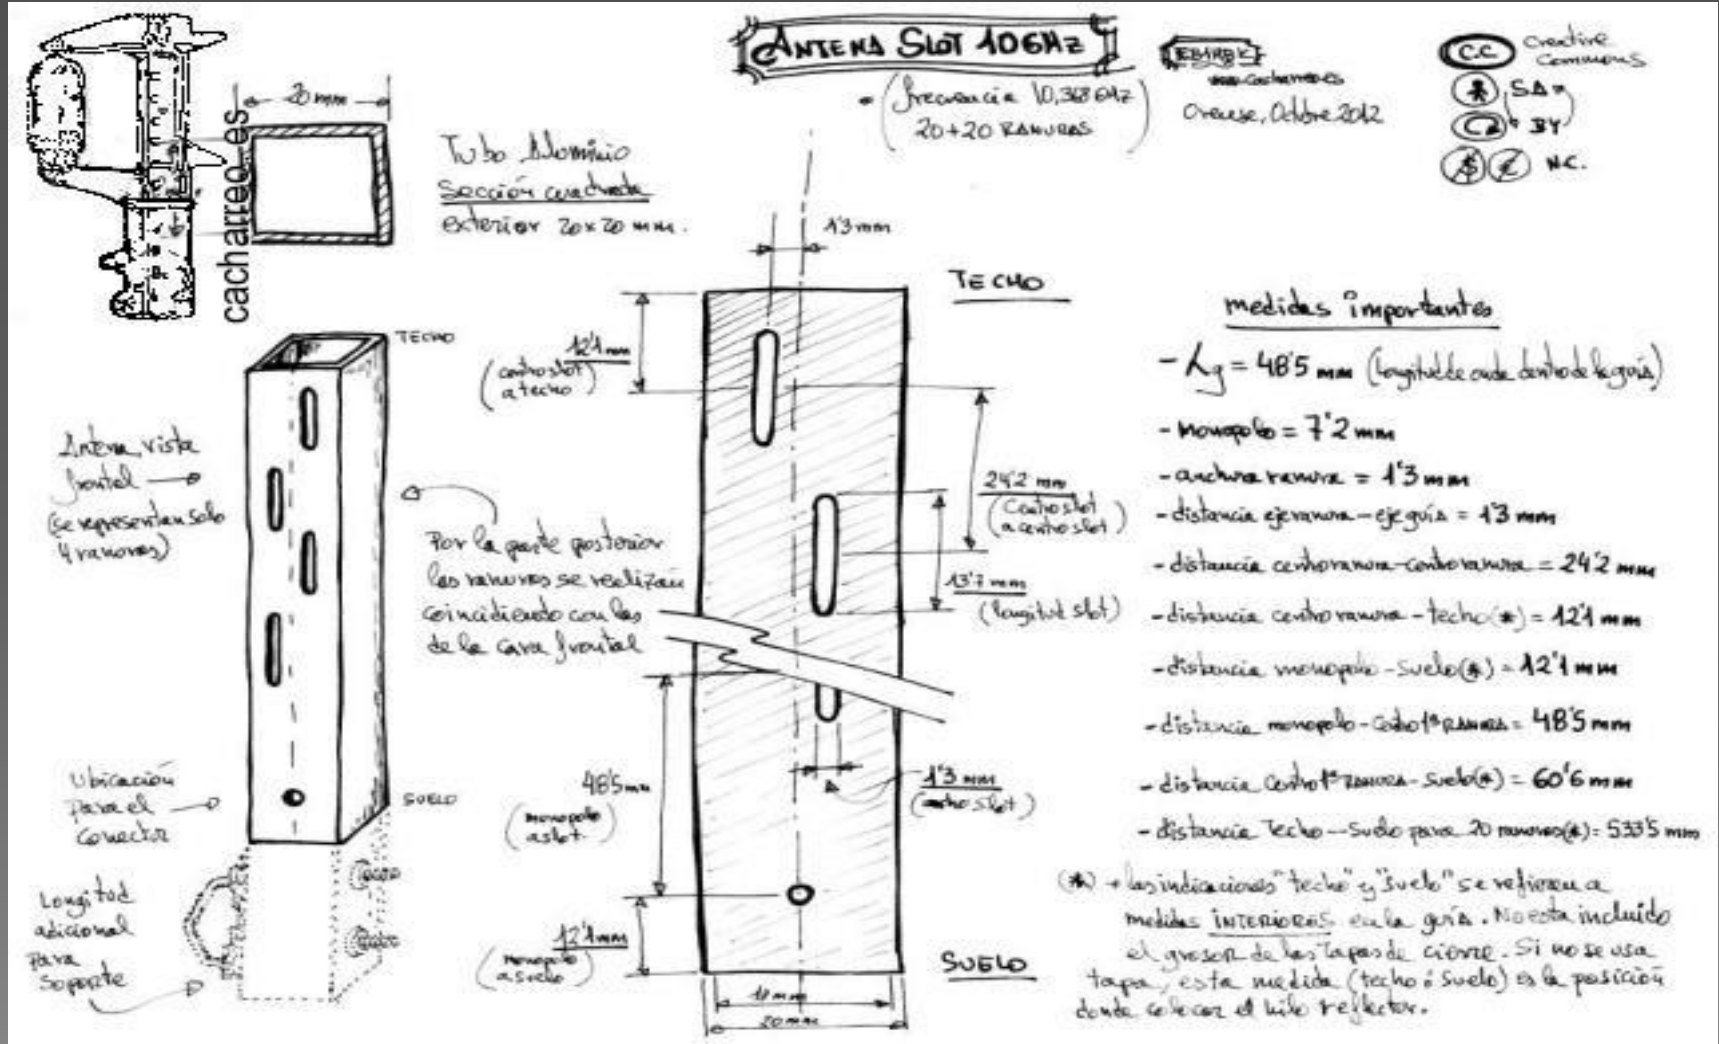 ANTENA SLOT 10GHz
(frecuencia 10,368 GHz
20+20 RANURAS)
Orense, Octubre 2012
C.C Creative
Commons
SA
BY
N.C.
cacharreo.es
20 mm
Tubo Aluminio
Sección cuadrada
exterior 20x20 mm.
TECHO
Antena, vista
frontal
(se representan solo
4 ranuras)
Por la parte posterior
las ranuras se realizan
coincidiendo con las
de la cara frontal
Ubicación
para el
conector
SUELO
Longitud
adicional
para
soporte
1'3 mm
TECHO
12'1 mm
(centro slot
a techo)
24'2 mm
(Centro slot
a centro slot)
13'7 mm
(longitud slot)
48'5 mm
(monopolo
a slot)
1'3 mm
(ancho slot)
12'1 mm
(monopolo
a suelo)
SUELO
18 mm
20 mm
medidas importantes
- λg = 48'5 mm (longitud de onda dentro de la guía)
- monopolo = 7'2 mm
- anchura ranura = 1'3 mm
- distancia eje ranura - eje guía = 1'3 mm
- distancia centro ranura - centro ranura = 24'2 mm
- distancia centro ranura - techo (*) = 12'1 mm
- distancia monopolo - suelo (*) = 12'1 mm
- distancia monopolo - Centro 1ª RANURA = 48'5 mm
- distancia Centro 1ª RANURA - Suelo (*) = 60'6 mm
- distancia Techo - Suelo para 20 ranuras (*) = 533'5 mm
(*) → las indicaciones "techo" y "suelo" se refieren a
medidas INTERIORES en la guía. No esta incluido
el grosor de las tapas de cierre. Si no se usa
tapa, esta medida (techo ó suelo) es la posición
donde colocar el hilo reflector.